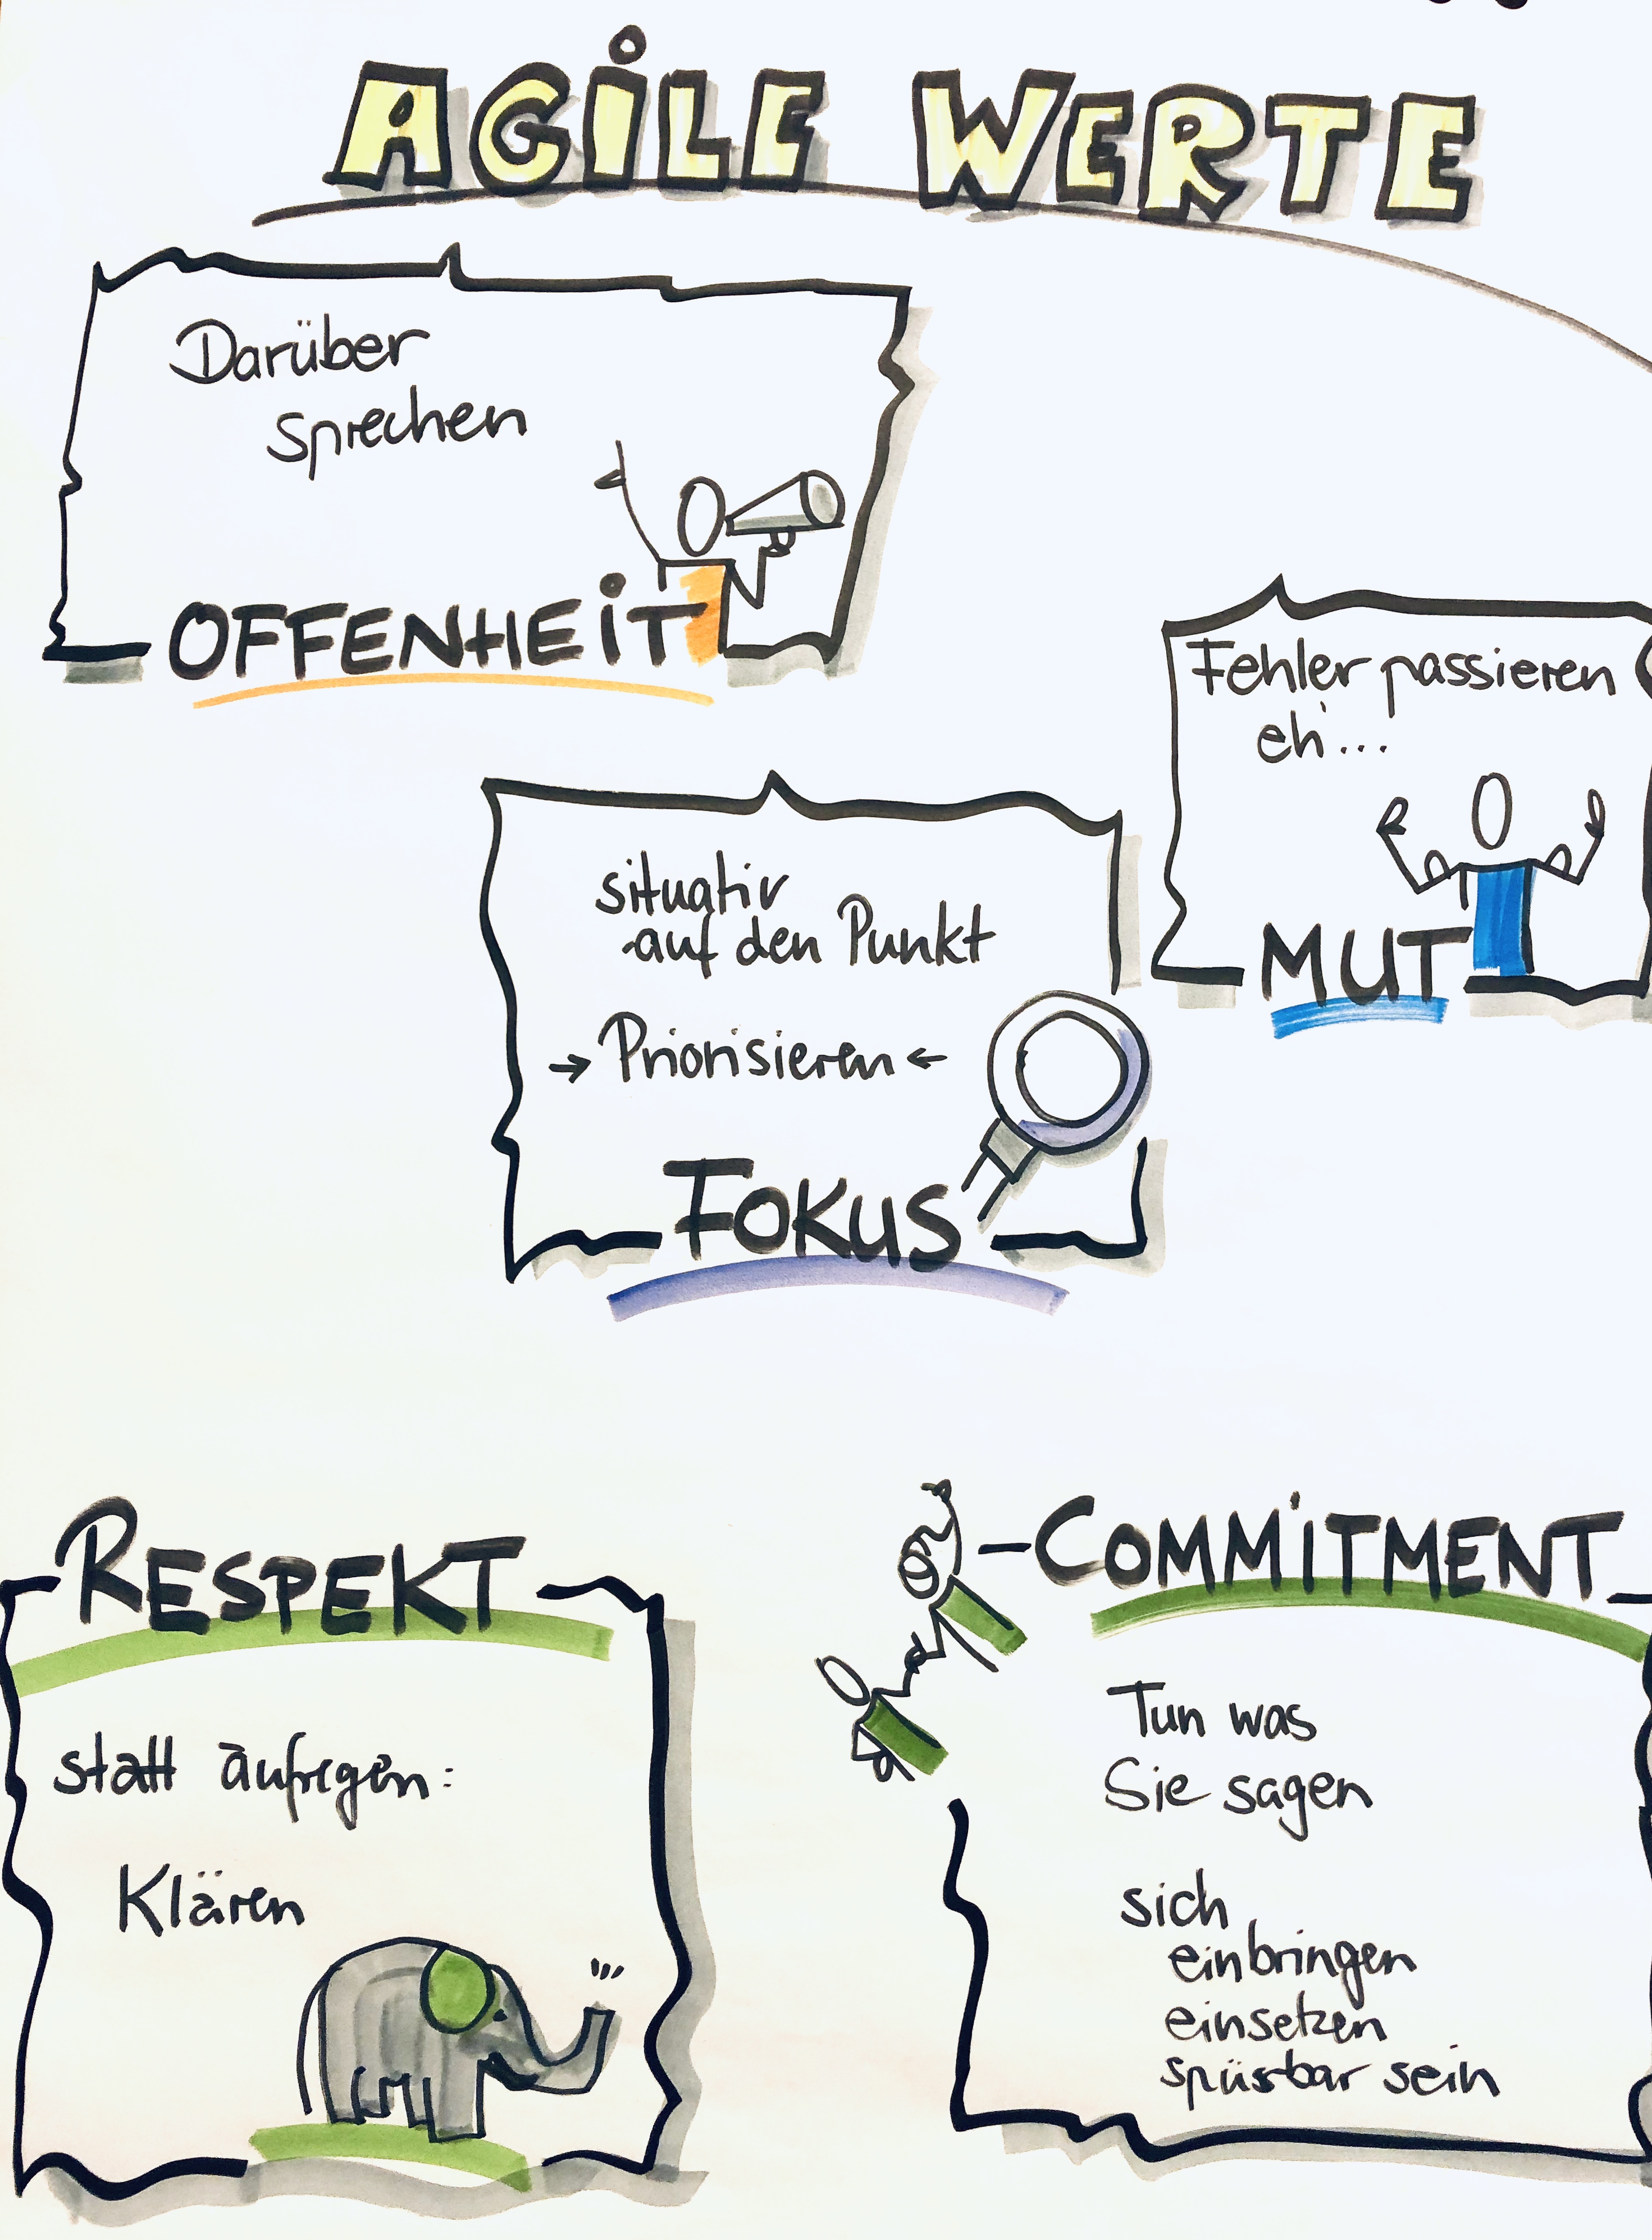 AGiLE WERTE
Darüber
sprechen
OFFENHEiT
Fehler passieren
eh'...
MUT
situativ
auf den Punkt
→ Priorisieren ←
FOKUS
RESPEKT
statt aufregen:
Klären
COMMiTMENT
Tun was
Sie sagen
sich
einbringen
einsetzen
spürbar sein